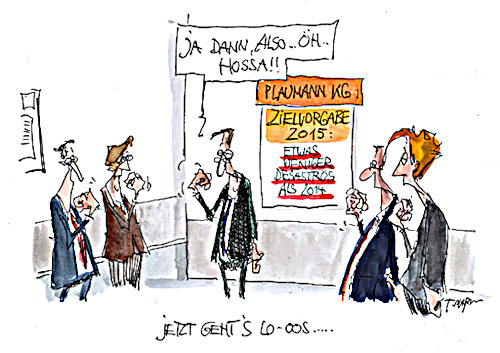 JA DANN, ALSO.. ÖH..
HOSSA!!
PLAUMANN KG:
ZIELVORGABE
2015:
ETWAS
WENIGER
DESASTRÖS
ALS 2014
JETZT GEHT'S LO-OOS.....